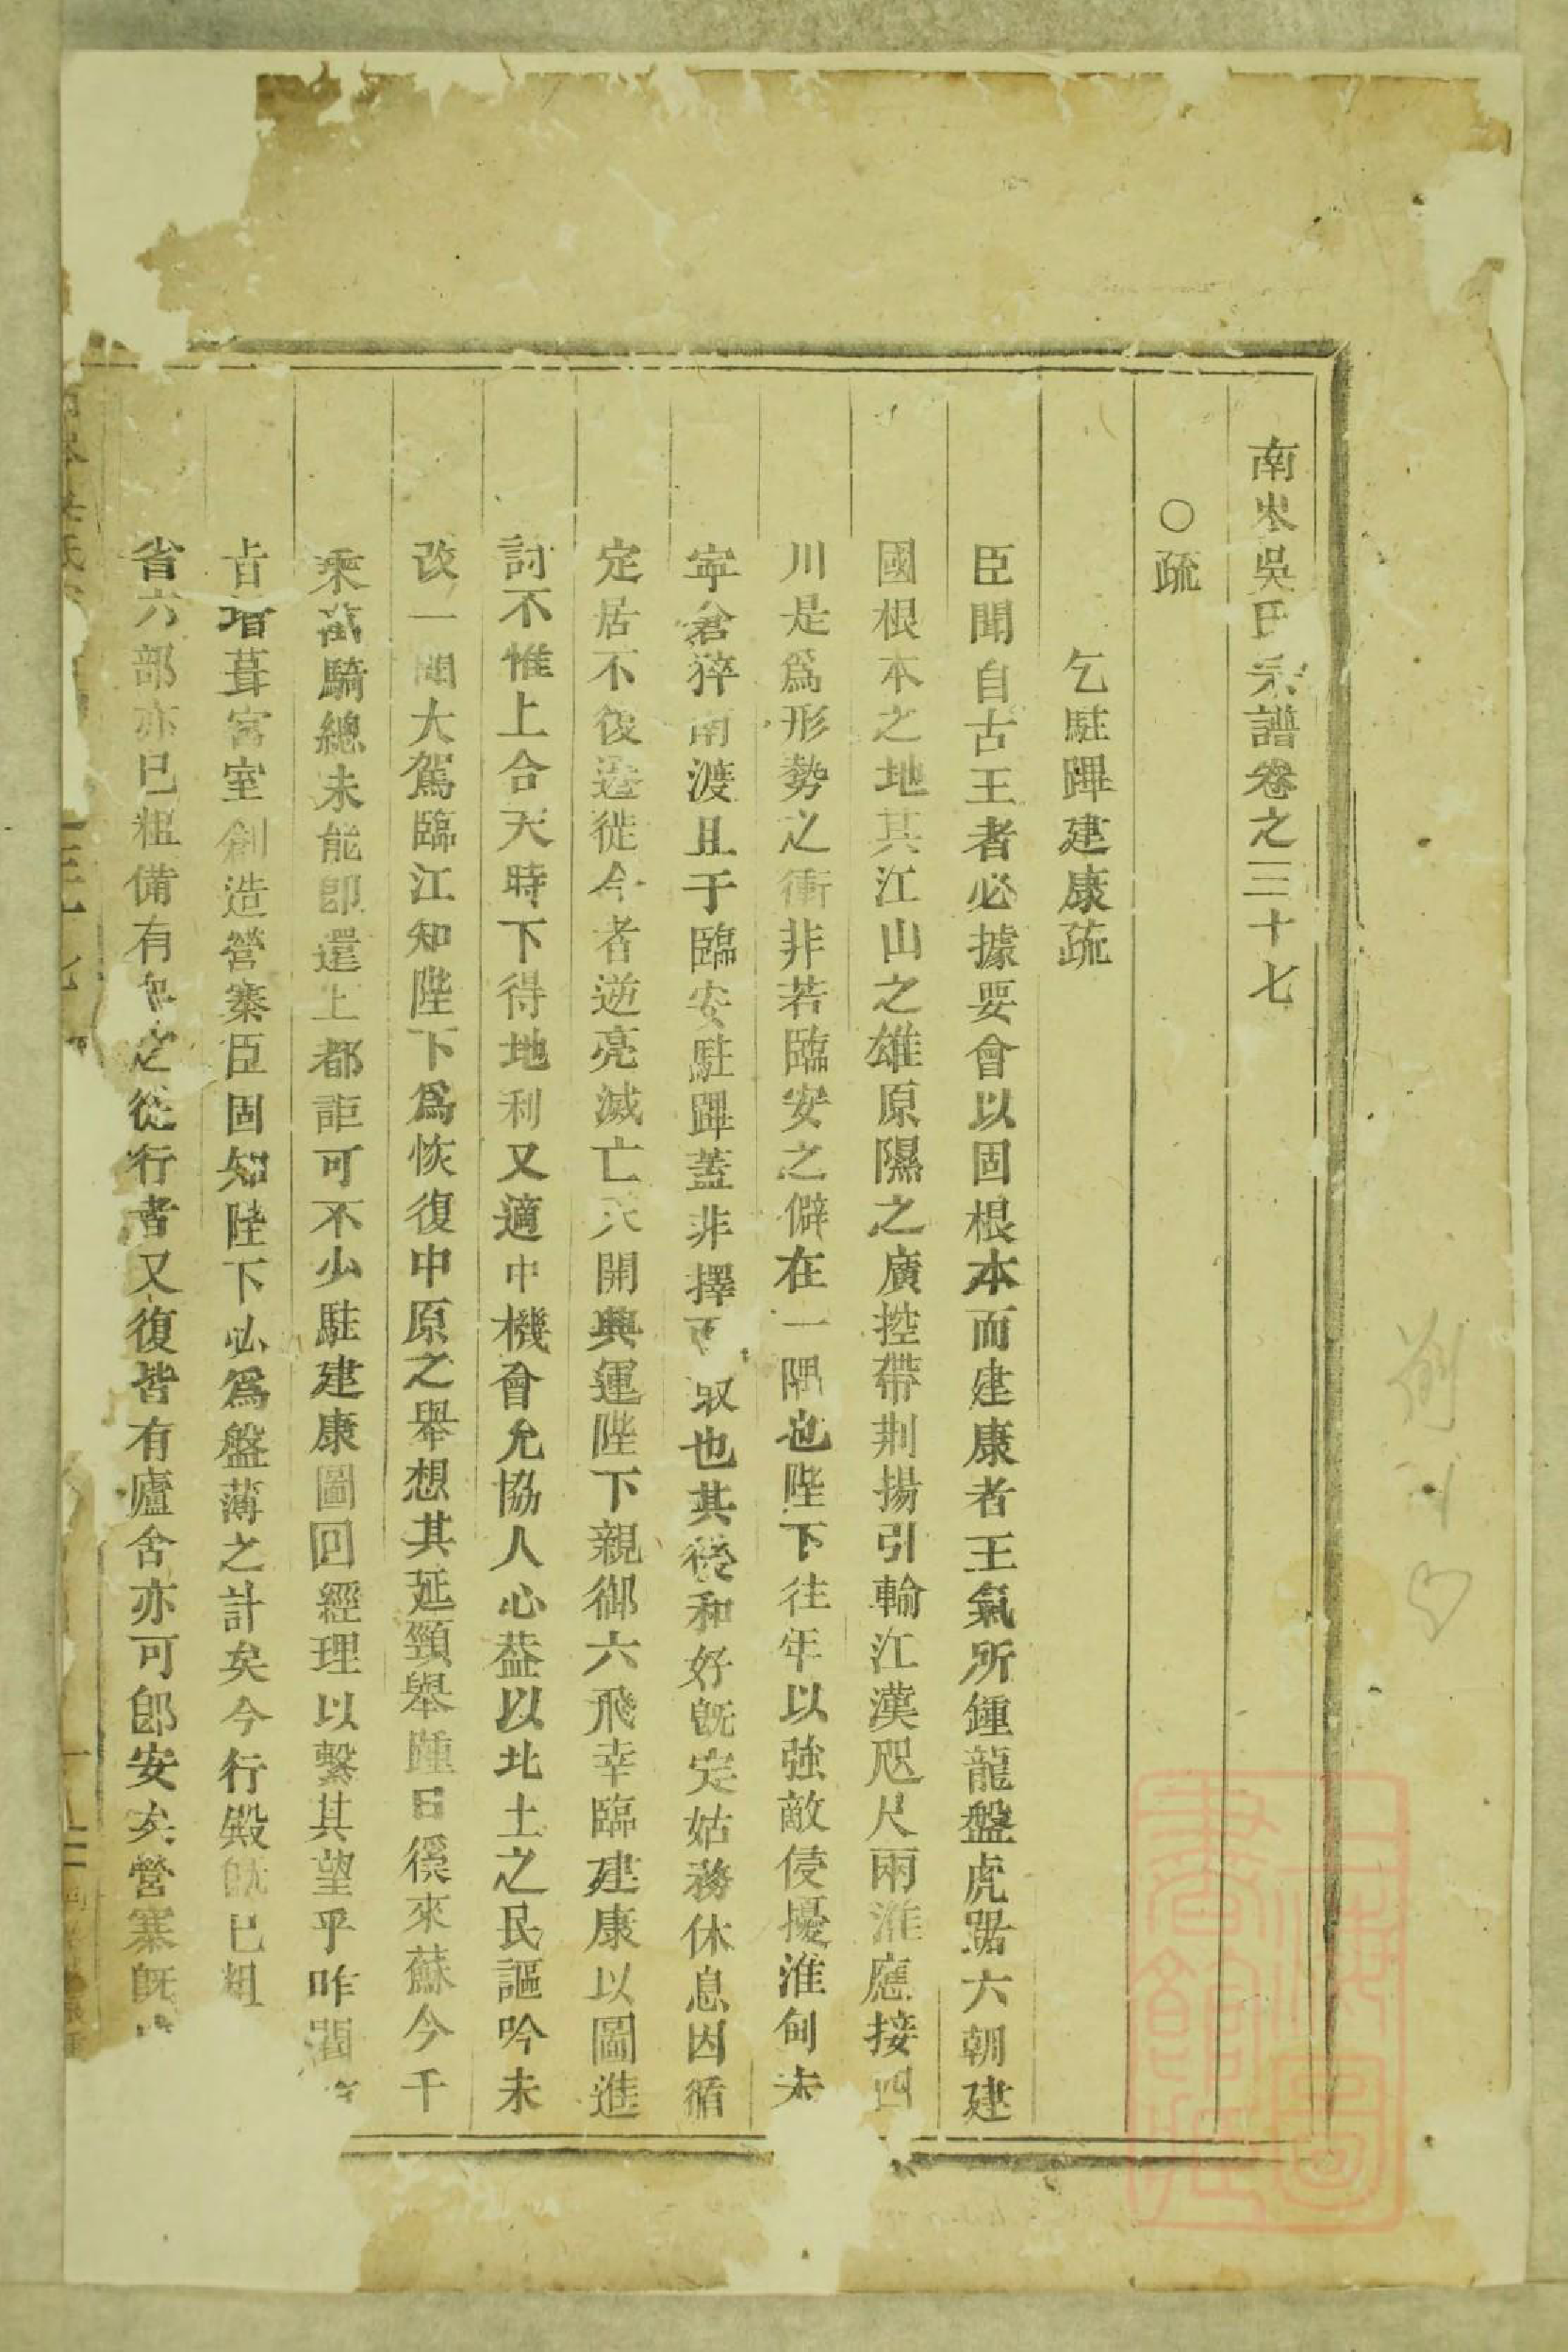 南岑吳氏宗譜卷之三十七
○疏
乞駐蹕建康疏
臣聞自古王者必據要會以固根本而建康者王氣所鍾龍盤虎踞六朝建
國根本之地其江山之雄原隰之廣控帶荆揚引輸江漢咫尺兩淮應接四
川是爲形勢之衝非若臨安之僻在一隅也陛下往年以強敵侵擾淮甸未
寧倉猝南渡且于臨安駐蹕蓋非擇而取也其後和好旣定姑務休息因循
定居不復遷徙今者逆亮滅亡天開興運陛下親御六飛幸臨建康以圖進
討不惟上合天時下得地利又適中機會允協人心葢以北土之民謳吟未
改一聞大駕臨江知陛下爲恢復中原之舉想其延頸舉踵日徯來蘇今千
乘萬騎總未能卽還上都詎可不少駐建康圖囘經理以繫其望乎昨
占增葺宮室創造營寨臣固知陛下必爲盤薄之計矣今行殿旣已粗
省六部亦已粗備有之從行者又復皆有廬舍亦可卽安矣營寨旣
上海圖書館藏